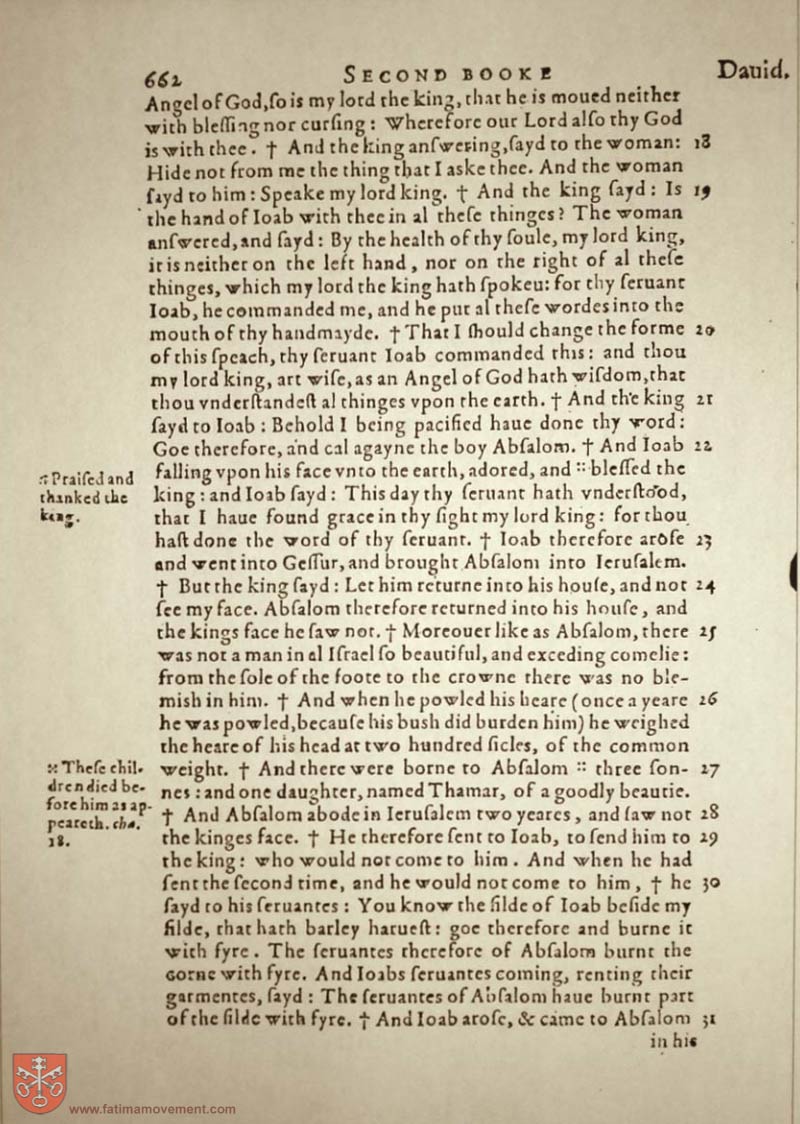 662 SECOND BOOKE Dauid.
Angel of God, ſo is my lord the king, that he is moued neither
with bleſſing nor curſing: Wherefore our Lord alſo thy God
is with thee. † And the king anſwering, ſayd to the woman: 18
Hide not from me the thing that I aske thee. And the woman
ſayd to him: Speake my lord king. † And the king ſayd: Is 19
the hand of Ioab with thee in al theſe thinges? The woman
anſwered, and ſayd: By the health of thy ſoule, my lord king,
it is neither on the left hand, nor on the right of al theſe
thinges, which my lord the king hath ſpokeu: for thy ſeruant
Ioab, he commanded me, and he put al theſe wordes into the
mouth of thy handmayde. † That I ſhould change the forme 20
of this ſpeach, thy ſeruant Ioab commanded this: and thou
my lord king, art wiſe, as an Angel of God hath wiſdom, that
thou vnderſtandeſt al thinges vpon the earth. † And the king 21
ſayd to Ioab: Behold I being pacified haue done thy word:
Goe therefore, and cal agayne the boy Abſalom. † And Ioab 22
falling vpon his face vnto the earth, adored, and :: bleſſed the
king: and Ioab ſayd: This day thy ſeruant hath vnderſtood,
that I haue found grace in thy ſight my lord king: for thou
haſt done the word of thy ſeruant. † Ioab therefore aroſe 23
and went into Geſſur, and brought Abſalom into Ieruſalem.
† But the king ſayd: Let him returne into his houſe, and not 24
ſee my face. Abſalom therefore returned into his houſe, and
the kings face he ſaw not. † Moreouer like as Abſalom, there 25
was not a man in al Iſrael ſo beautiful, and exceding comelie:
from the ſole of the foote to the crowne there was no ble-
miſh in him. † And when he powled his heare (once a yeare 26
he was powled, becauſe his bush did burden him) he weighed
the heare of his head at two hundred ſicles, of the common
weight. † And there were borne to Abſalom :: three ſon- 27
nes: and one daughter, named Thamar, of a goodly beautie.
† And Abſalom abode in Ieruſalem two yeares, and ſaw not 28
the kinges face. † He therefore ſent to Ioab, to ſend him to 29
the king: who would not come to him. And when he had
ſent the ſecond time, and he would not come to him, † he 30
ſayd to his ſeruantes: You know the filde of Ioab beſide my
filde, that hath barley harueſt: goe therefore and burne it
with fyre. The ſeruantes therefore of Abſalom burnt the
corne with fyre. And Ioabs ſeruantes coming, renting their
garmentes, ſayd: The ſeruantes of Abſalom haue burnt part
of the filde with fyre. † And Ioab aroſe, & came to Abſalom 31
in his
:: Praiſed and
thanked the
king.
:: Theſe chil-
dren died be-
fore him as ap-
peareth. cha.
18.
www.fatimamovement.com